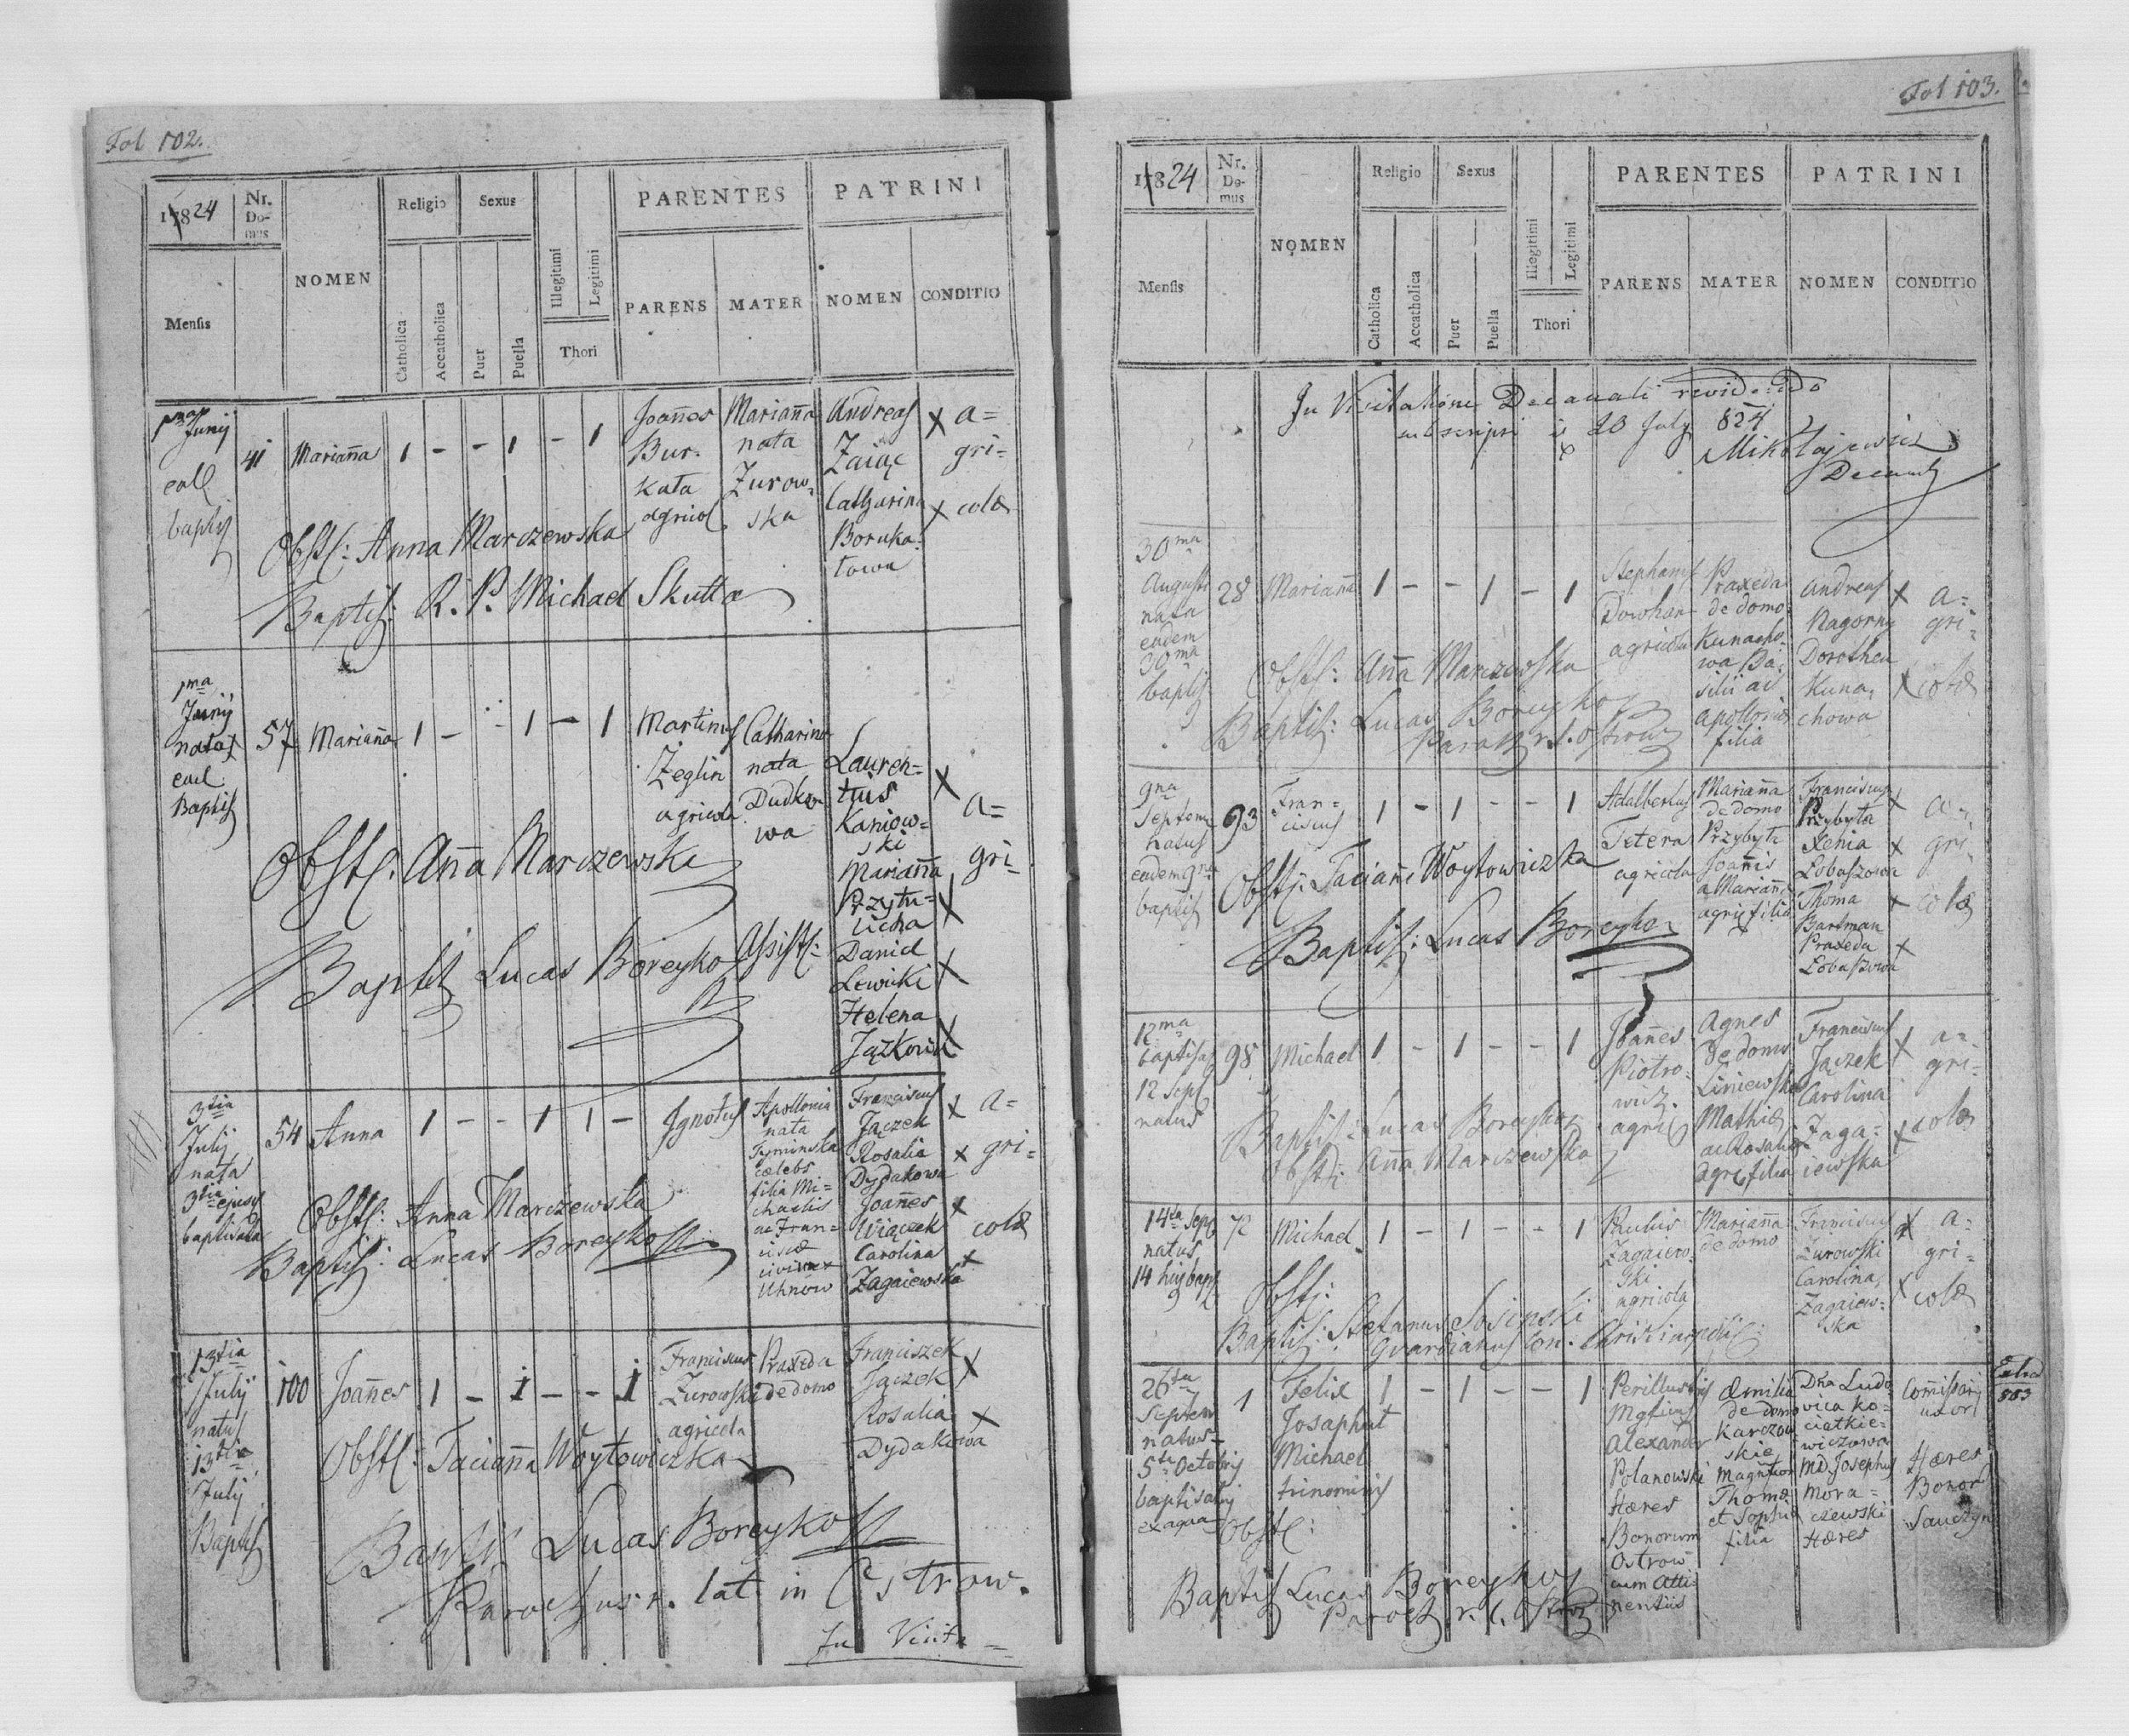 Fol 102.
17824
Nr. Do- mus
NOMEN
Religio
Sexus
PARENTES
PATRINI
Mensis
Catholica
Accatholica
Puer
Puella
Illegitimi
Legitimi
Thori
PARENS
MATER
NOMEN
CONDITIO
1ma Junij
ead
baptis
41 Marianna 1 - - 1 - 1
Joannes
Bur-
kata
agricol
Marianna
nata
Zurow-
ska
Andreas
Zaiąc
Catharina
Boruka-
towa
X a=
gri-
X colae
Obst: Anna Marczewska
Baptis: R. P. Michael Skutta
1ma
Junij
nata
ead
Baptis
57 Marianna 1 - - 1 - 1
Martinus
Żeglin
agricola
Catharina
nata
Dudko
wa
Lauren=
tius
Kaniow=
ski
Marianna
Przytu=
licha
Daniel
Lewicki
Helena
Jązkowa
X
a=
gri-
X
X
X
Obst. Anna Marczewska
Baptis Lucas Boreyko Assist:
3tia
Julij
nata
3tia ejusd
baptisata
54 Anna 1 - - 1 1 -
Ignotus
Apollonia
nata
Tyminska
caelebs
filia Mi=
chaelis
ac Fran=
ciscae
civium
Uhnów
Franciscus
Jączek
Rosalia
Dydakowa
Joannes
Wiączek
Carolina
Zagaiewska
X a=
x gri-
x
colae
x
Obst: Anna Marczewska
Baptis: Lucas Boreyko
13tia
Julij
natus
13tia
Julij
Baptis
100 Joannes 1 - 1 - - 1
Franciscus
Zurowski
agricola
Praxeda
de domo
Franciszek
Jączek
Rosalia
Dydakowa
X
X
Obst: Tacianna Woytowiczka
Baptis Lucas Boreyko
Parochus r. lat. in Ostrow.
In Visita=
Fol 103.
17824
Nr. De- mus
NOMEN
Religio
Sexus
PARENTES
PATRINI
Mensis
Catholica
Accatholica
Puer
Puella
Illegitimi
Legitimi
Thori
PARENS
MATER
NOMEN
CONDITIO
In Visitatione Decanali revidendo
subscripsi 20 July 824
Mikołajewicz
Decanus
30ma
Augusti
nata
eadem
30ma
baptis
28 Marianna 1 - - 1 - 1
Stephanus
Dowhan
agricola
Praxeda
de domo
Kunacho-
wa Ba-
silii ac
Apollonia
filia
Andreas
Nagorny
Dorothea
Kuna-
chowa
X a=
gri-
X colae
Obst: Anna Marczewska
Baptis: Lucas Boreyko
Paroch r. l. Ostrow
9na
Septem
natus
eadem 9na
baptis
93 Fran=
ciscus 1 - 1 - - 1
Adalbertus
Tetera
agricola
Marianna
de domo
Przybyta
Joannis
a Marianna
agri filia
Franciscus
Przybyta
Xenia
Łobaszowa
Thoma
Bartman
Praxeda
Łobaszowa
x a=
x gri-
x colae
x
Obst: Tacianna Woytowiczka
Baptis: Lucas Boreyko
12ma
baptisas
12 Sept
natus
98 Michael 1 - 1 - - 1
Joannes
Piotro-
wicz
agri
Agnes
de domo
Liniewska
Mathiae
ac Rosaliae
agri filia
Franciscus
Jączek
Carolina
Zaga=
iewska
x a=
gri-
x colae
Baptis: Lucas Boreyko
Obst: Anna Marczewska
14ta Sept
natus
14 huj bapt
72 Michael 1 - 1 - - 1
Paulus
Zagaiew-
ski
agricola
Marianna
de domo
Franciscus
Zurowski
Carolina
Zagaiew-
ska
x a=
gri-
x colae
Obst:
Baptis: Stefanus Sosinski
Guardianus Con. Christinopoli
26ta
Septem
natus
5ta Octobris
baptisatus
ex aqua
1 Felix
Josaphat
Michael
trinominis
1 - 1 - - 1
Perillustris
Mgficus
Alexander
Polanowski
Haeres
Bonorum
Ostrow
cum Atti
nentiis
Aemilia
de domo
Karczew
skie
Magnficor
Thomae
et Sophiae
filia
Dna Ludo
vica Ko-
ciatkie=
wiczowa
MD. Josephus
Mora=
czewski
Haeres
Commissarj
uxor
Haeres
Bonor
Sawczyn
Obst:
Baptis Lucas Boreyko
Paroch r. l. Ostrow